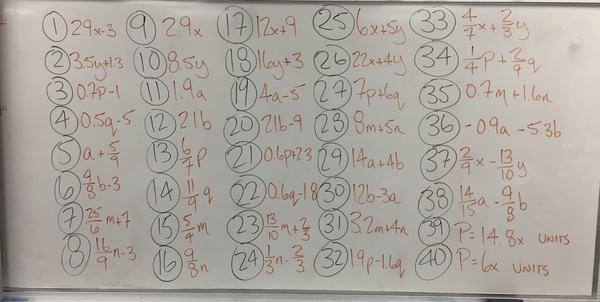 1 2.9x-3
2 3.5y+1.3
3 0.7p-1
4 0.5q-5
5 a+5/9
6 4/3b-3
7 25/6 m+7
8 16/9 n-3
9 2.9x
10 8.5y
11 1.9a
12 2.1b
13 6/7 p
14 11/9 q
15 5/4 m
16 9/8 n
17 12x+9
18 16y+3
19 4a-5
20 21b-9
21 0.6p+2.3
22 0.6q-1.8
23 13/10 m+2/3
24 1/3 n-2/3
25 6x+5y
26 22x+4y
27 7p+6q
28 8m+5n
29 14a+4b
30 12b-3a
31 3.2m+4n
32 1.9p-1.6q
33 4/7x+2/3y
34 1/4p+2/9q
35 0.7m+1.6n
36 -0.9a-5.3b
37 2/9x-13/10y
38 14/15a-9/8b
39 P=14.8x UNITS
40 P=6x UNITS